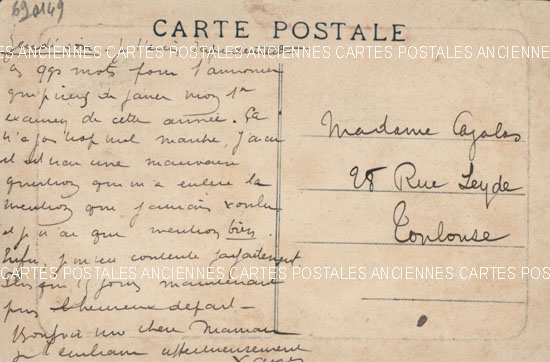 690149
CARTE POSTALE
ANCIENNES CARTES POSTALES ANCIENNES CARTES POSTALES ANCIENNES
ces qqs mots pour t'annoncer
que je viens de passer mon 1er
examen de cette année. Ça
n'a pas trop mal marché, j'avais
une mauvaise
question qui m'a enlevé la
mention que j'aurais voulu
et je n'ai que mention bien.
Enfin, contente parfaitement
CARTES POSTALES ANCIENNES CARTES POSTALES ANCIENNES CARTES POSTALES
Plus que 15 jours maintenant
pour l'heureux départ -
Bonsoir ma chère Maman
je t'embrasse affectueusement
Madame Cazalas
28 Rue Leyde
Toulouse